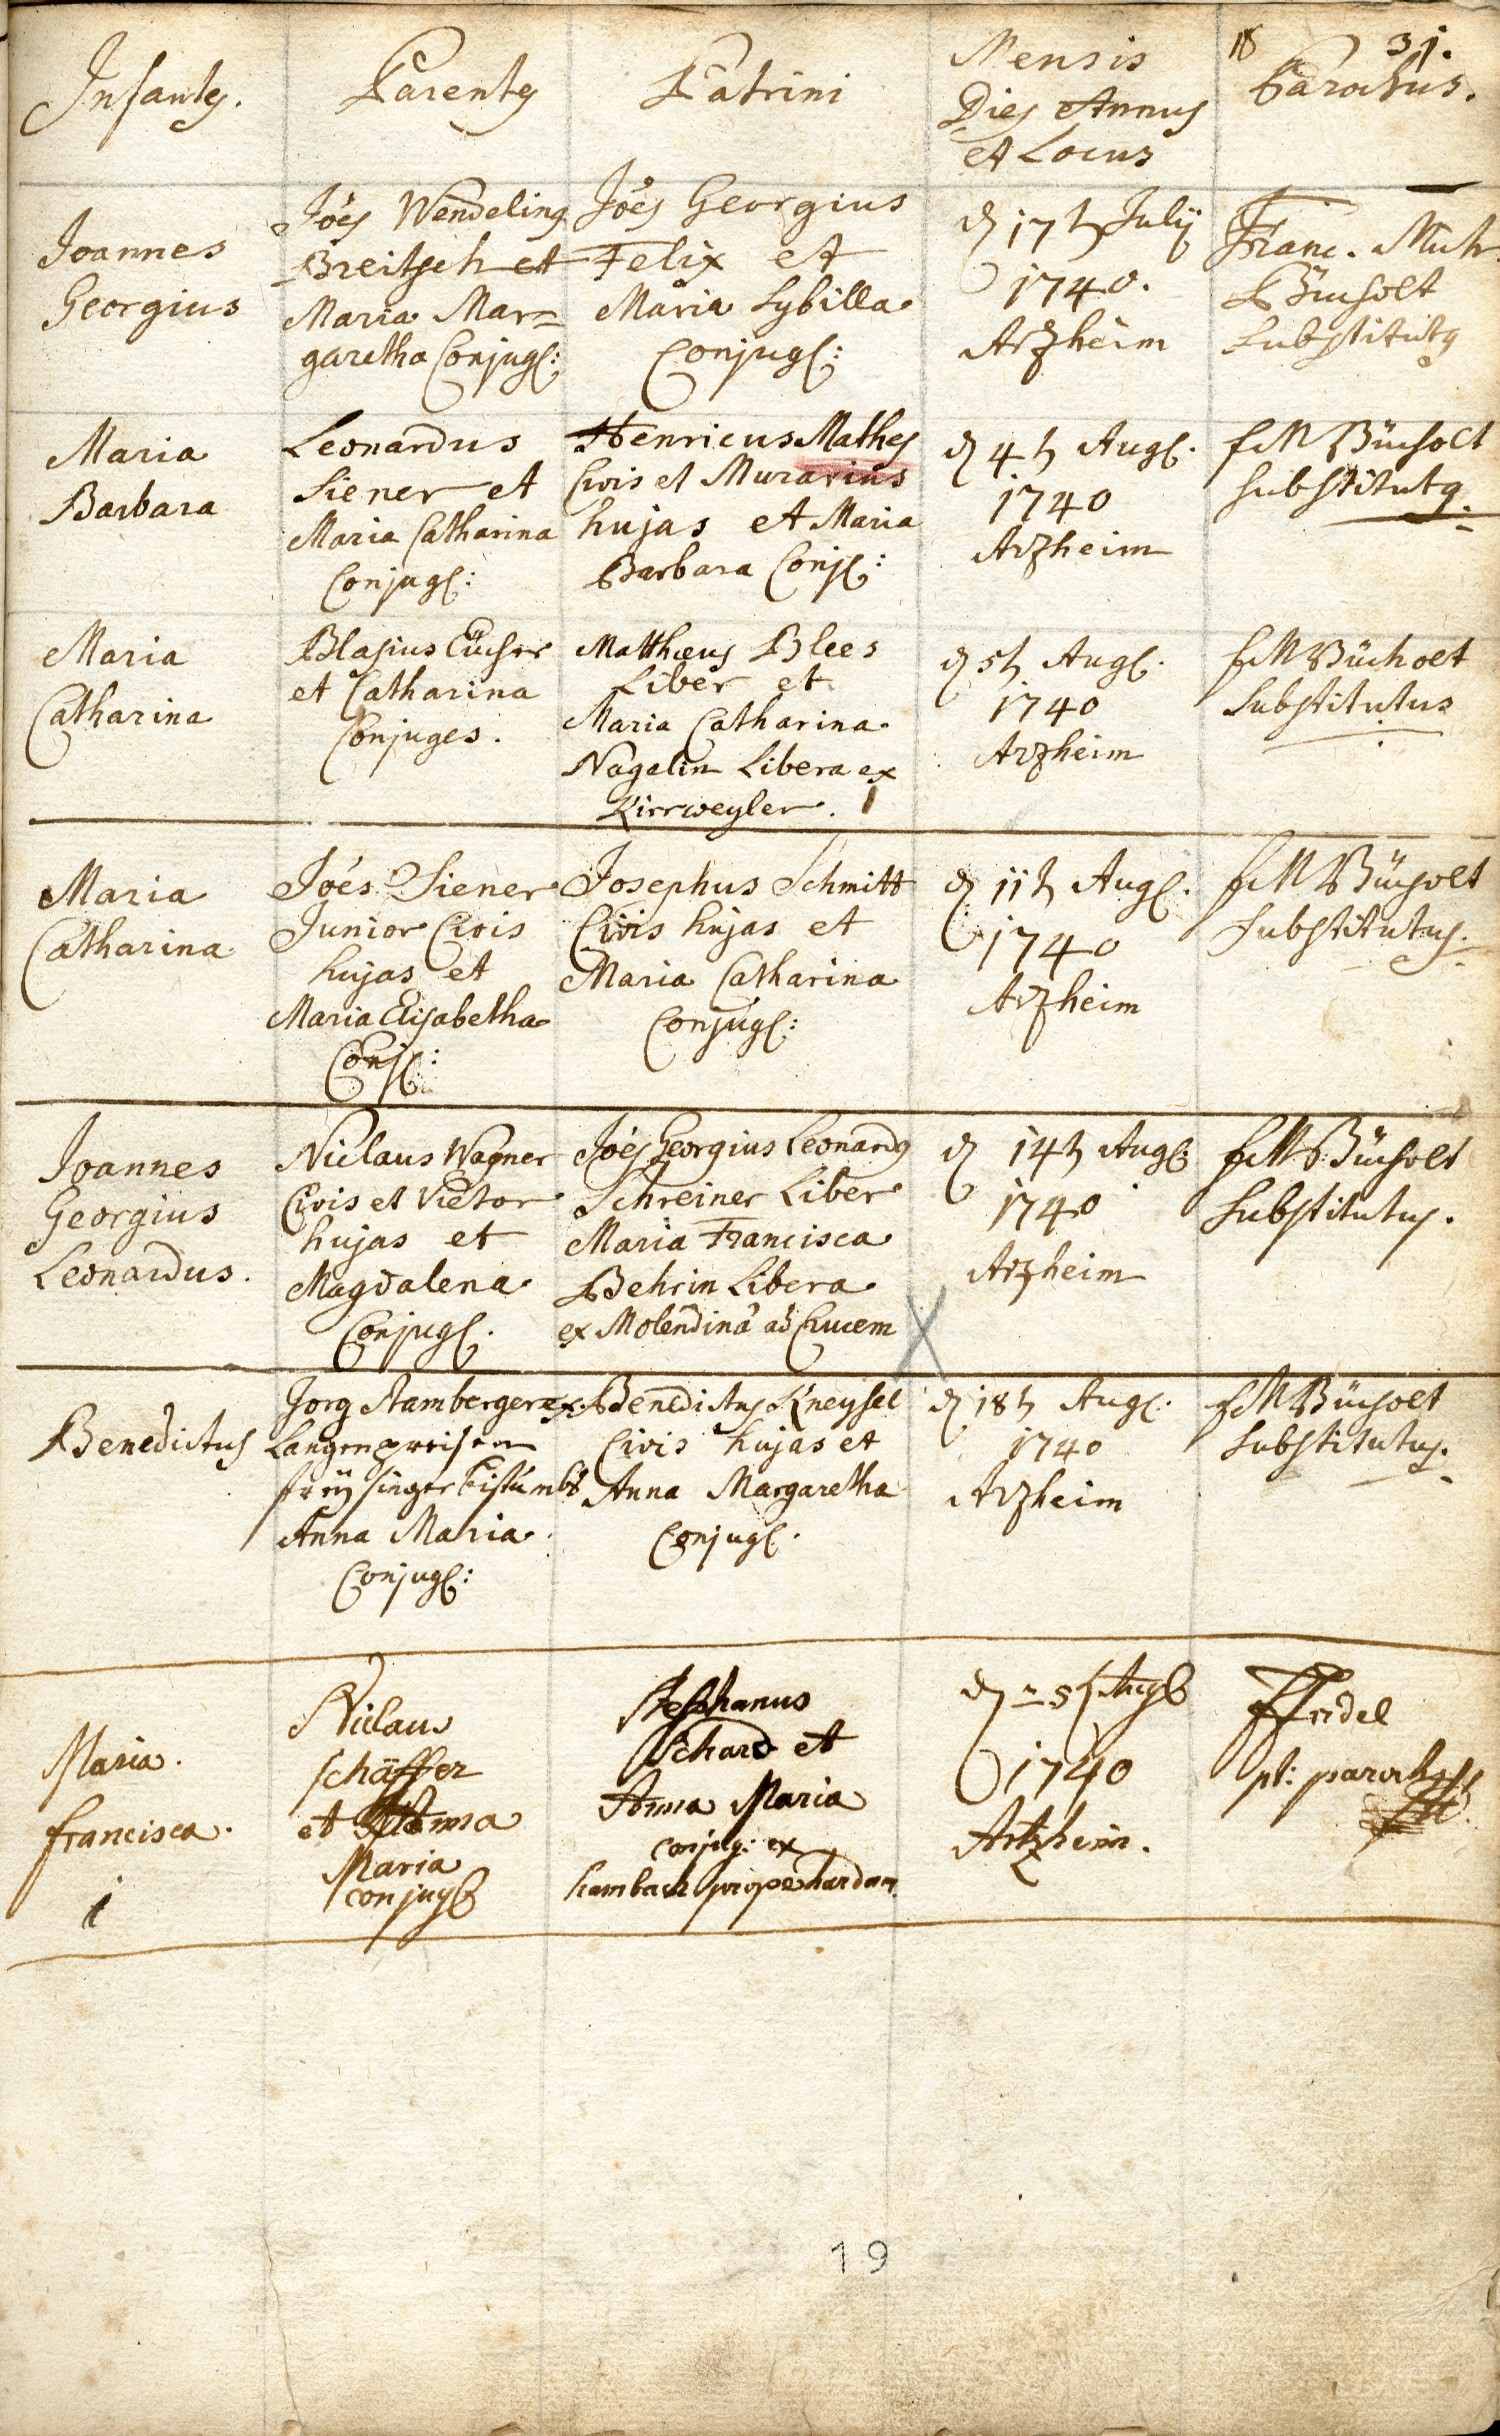 18 31.
Infantes.
Parentes
Patrini
Mensis
Dies Annus
et Locus
Parochus.
Joannes
Georgius
Joes Wendelinus
Breitsch et
Maria Mar=
garetha Conjug:
Joes Georgius
Felix et
Maria Sybilla
Conjug:
d 17t July
1740.
Arzheim
Franc. Mich.
Bücholt
Substitutus
Maria
Barbara
Leonardus
Siener et
Maria Catharina
Conjug:
Henricus Mathes
Civis et Murarius
hujas et Maria
Barbara Conj:
d 4t Aug.
1740
Arzheim
f M Bücholt
substitutus.
Maria
Catharina
Blasius
et Catharina
Conjuges.
Matthæus Blees
Liber et
Maria Catharina
Nagelin Libera ex
Kirrweyler.
d 5t Aug.
1740
Arzheim
f M Bücholt
Substitutus
Maria
Catharina
Joes Siener
Junior Civis
hujas et
Maria Elisabetha
Conj:
Josephus Schmitt
Civis hujas et
Maria Catharina
Conjug:
d 11t Aug.
1740
Arzheim
f M Bücholt
Substitutus.
Joannes
Georgius
Leonardus.
Niclaus Wagner
Civis et Vietor
hujas et
Magdalena
Conjug.
Joes Georgius Leonardus
Schreiner Liber
Maria Francisca
Behrin Libera
ex Molendina ad Crucem
d 14t Aug:
1740
Arzheim
f M Bücholt
Substitutus.
Benedictus
Jorg Stamberger ex
Langenpreisen
freysinger Bistumbs
Anna Maria
Conjug:
Benedictus Kneysel
Civis hujas et
Anna Margaretha
Conjug.
d 18t Aug.
1740
Arzheim
f M Bücholt
Substitutus.
Maria
francisca.
Niclaus
schäffer
et Anna
Maria
conjug
Stephanus
Schard et
Anna Maria
conjug: ex
hambach prope hardam
1740
Artzheim.
pt: parochus
19